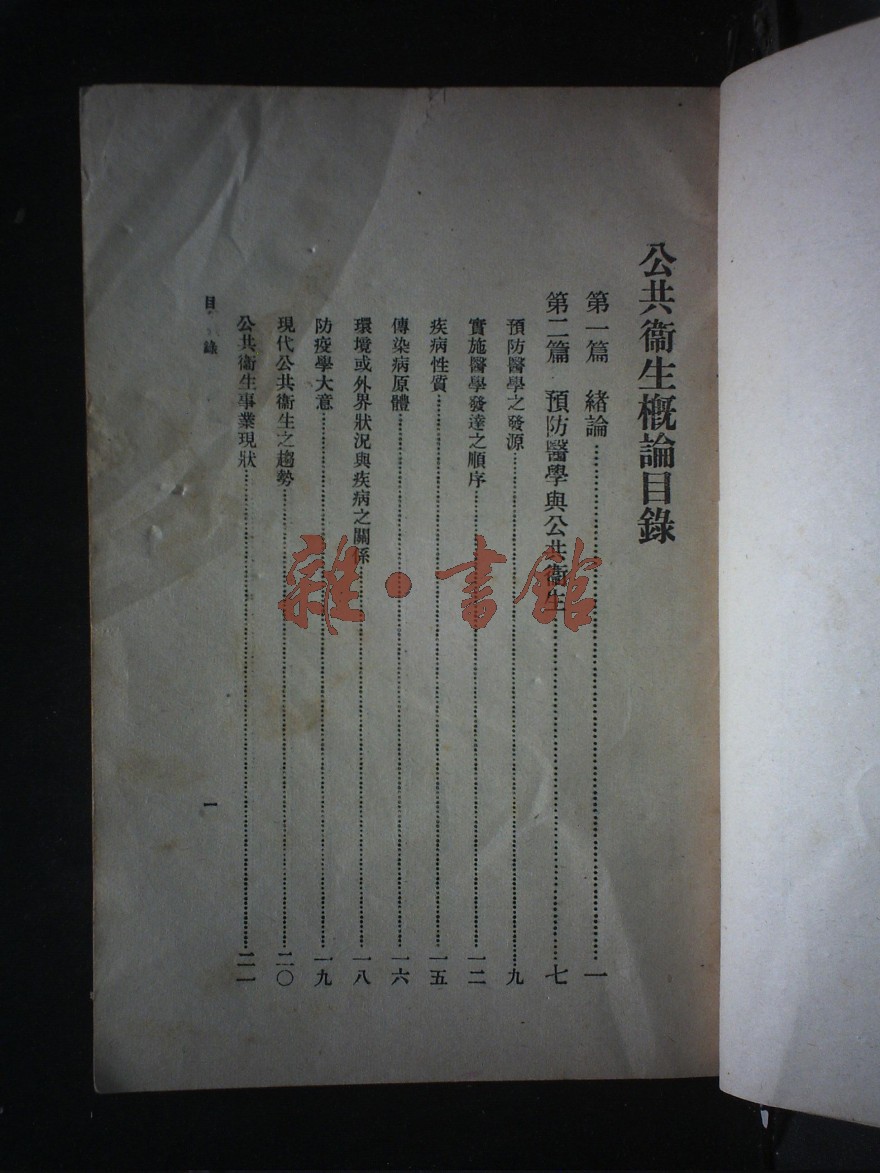 公共衞生概論目錄
第一篇 緒論……一
第二篇 預防醫學與公共衞生……七
預防醫學之發源……九
實施醫學發達之順序……一二
疾病性質……一五
傳染病原體……一六
環境或外界狀況與疾病之關係……一八
防疫學大意……一九
現代公共衞生之趨勢……二〇
公共衞生事業現狀……二一
目錄
一
雜·書館